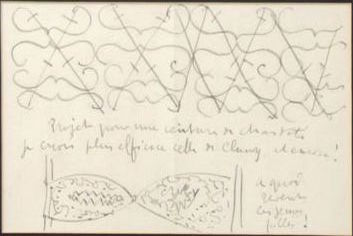 Projet pour une ceinture de chasteté !
je crois plus efficace celle de Cluny et encore !
à quoi
rêvent
les jeunes
filles !